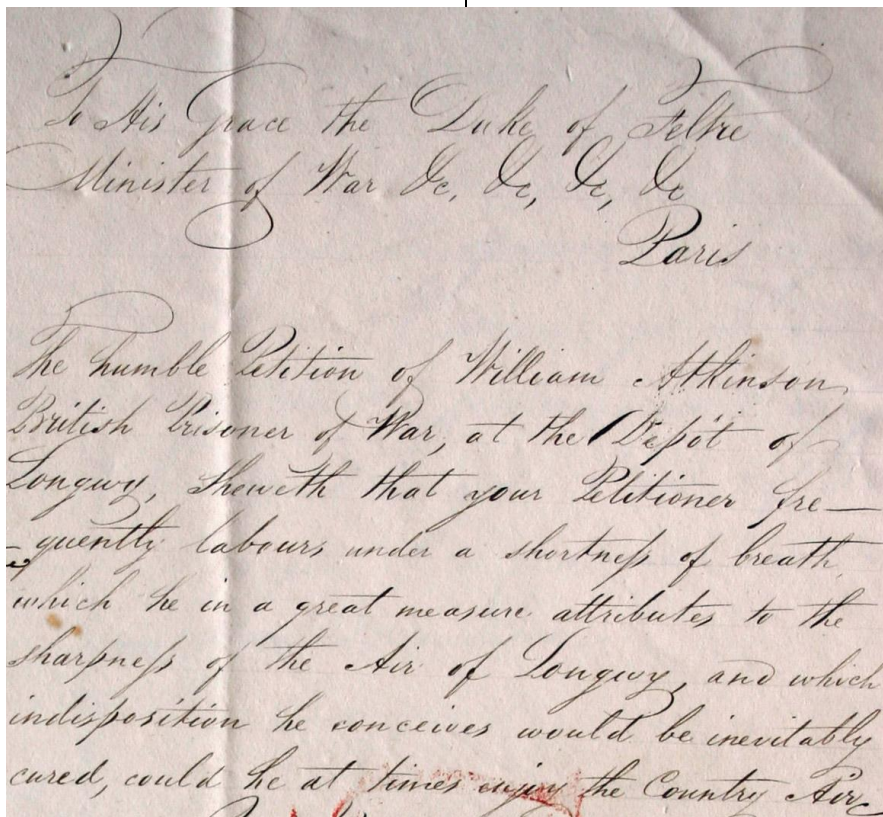 To His Grace the Duke of Feltre
Minister of War &c, &c, &c, &c
Paris
The humble Petition of William Atkinson
British Prisoner of War, at the Depôt of
Longwy, Sheweth that your Petitioner fre-
-quently labours under a shortness of breath
which he in a great measure attributes to the
sharpness of the Air of Longwy, and which
indisposition he conceives would be inevitably
cured, could he at times enjoy the Country Air